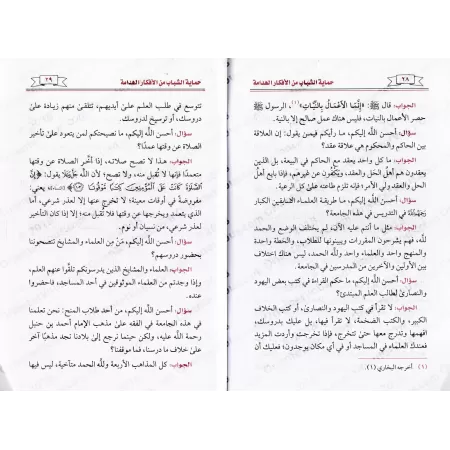 ٢٨
حماية الشباب من الأفكار الهدامة
الجواب: قال ﷺ: «إِنَّمَا الأَعْمَالُ بِالنِّيَّاتِ»(١)، الرسول ﷺ
حصر الأعمال بالنيات، فليس هناك عمل صالح إلا بالنية.
سؤال: أحسن اللَّه إليكم، ما رأيكم فيمن يقول: إن العلاقة
بين الحاكم والمحكوم هي علاقة عقد؟
الجواب: ما كل واحد يعقد مع الحاكم في البيعة، بل اللذين
يعقدون هم أهل الحل والعقد، ويكفُون عن غيرهم، فإذا بايع أهلُ
الحل والعقد ولي الأمر؛ فإنه تلزم طاعته على كل الرعية.
سؤال: أحسن اللَّه إليكم، ما طريقة العلماء السابقين الكبار
في التدريس في هذه الجامعة؟
الجواب: مثل ما أنتم عليه الآن، لم يختلف الوضع والحمد
للَّه، فهم يشرحون المقررات ويبينونها للطلاب، والخطة واحدة
والمنهج واحد والعلماء واحد وللَّه الحمد، ليس هناك اختلاف
بين الأولين والآخرين من المدرسين في الجامعة.
سؤال: أحسن اللَّه إليكم، ما حكم القراءة في بعض كتب اليهود
والنصارى لطالب العلم المبتدئ؟
الجواب: لا تقرأ في كتب اليهود والنصارى، أو كتب الخلاف
الكبير، والكتب الضخمة، لا تقرأ فيها، بل عليك بدروسك،
افهمها وتدرج معها حتى تتخرج، فإذا تخرجت وأردت المزيد
فعندك العلماء في المساجد أو في أي مكان يوجدون؛ فعليك أن
(١) أخرجه البخاري (١).
٢٩
حماية الشباب من الأفكار الهدامة
تتوسع في طلب العلم على أيديهم، تتلقى منهم زيادة على
دروسك، أو توسيخ لدروسك.
سؤال: أحسن اللَّه إليكم، ما نصيحتكم لمن يتعود على تأخير
الصلاة عن وقتها عمدًا؟
الجواب: هذا لا تصح صلاته، إذا أخَّر الصلاة عن وقتها
متعمدًا فإنها لا تُقبل منه؛ لأن اللَّه يقول: ﴿إِنَّ
الصَّلَاةَ كَانَتْ عَلَى الْمُؤْمِنِينَ كِتَابًا مَوْقُوتًا﴾ يعني:
مفروضةً في أوقات معينة؛ لا تخرج عنها إلا لعذر شرعي، أما
الذي يتعمد ويخرجها عن وقتها فلا تُقبل منه؛ إلا إذا كان
لعذر شرعي، من نسيان أو نوم.
سؤال: أحسن اللَّه إليكم، مَنْ مِن العلماء والمشايخ تنصحوننا
بحضور دروسهم؟
الجواب: العلماء والمشايخ الذين يدرسونكم تلقَّوا عنهم العلم،
وإذا وجدتم من العلماء الموثوقين في أحد المساجد، فاحضروا
عنده.
سؤال: أحسن اللَّه إليكم، من أحد طلاب المنح: نحن تعلمنا
في هذه الجامعة في الفقه على مذهب الإمام أحمد بن حنبل
رحمة اللَّه عليه، ولكن حينما نرجع إلى بلادنا نجد مذهبًا آخر
على خلاف ما درسنا، فما موقفنا؟
الجواب: كل المذاهب الأربعة وللَّه الحمد متآخية، ليس فيها